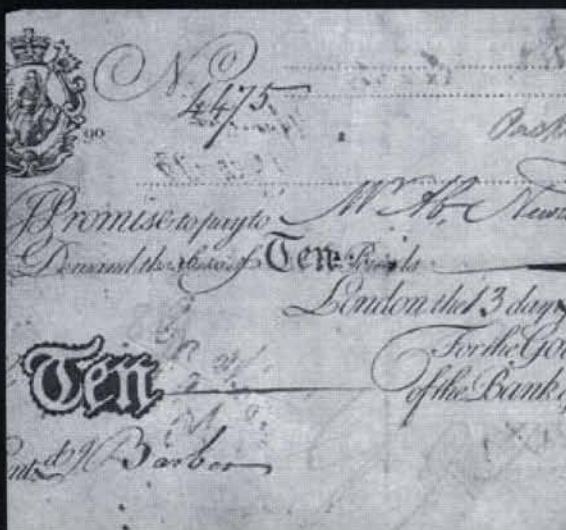 No
4475
90
I Promise to pay to Mr. Ab. New
Demand the Sum of Ten Pounds
London the 13 day
For the Go
of the Bank
Ten
Entd. J Barber